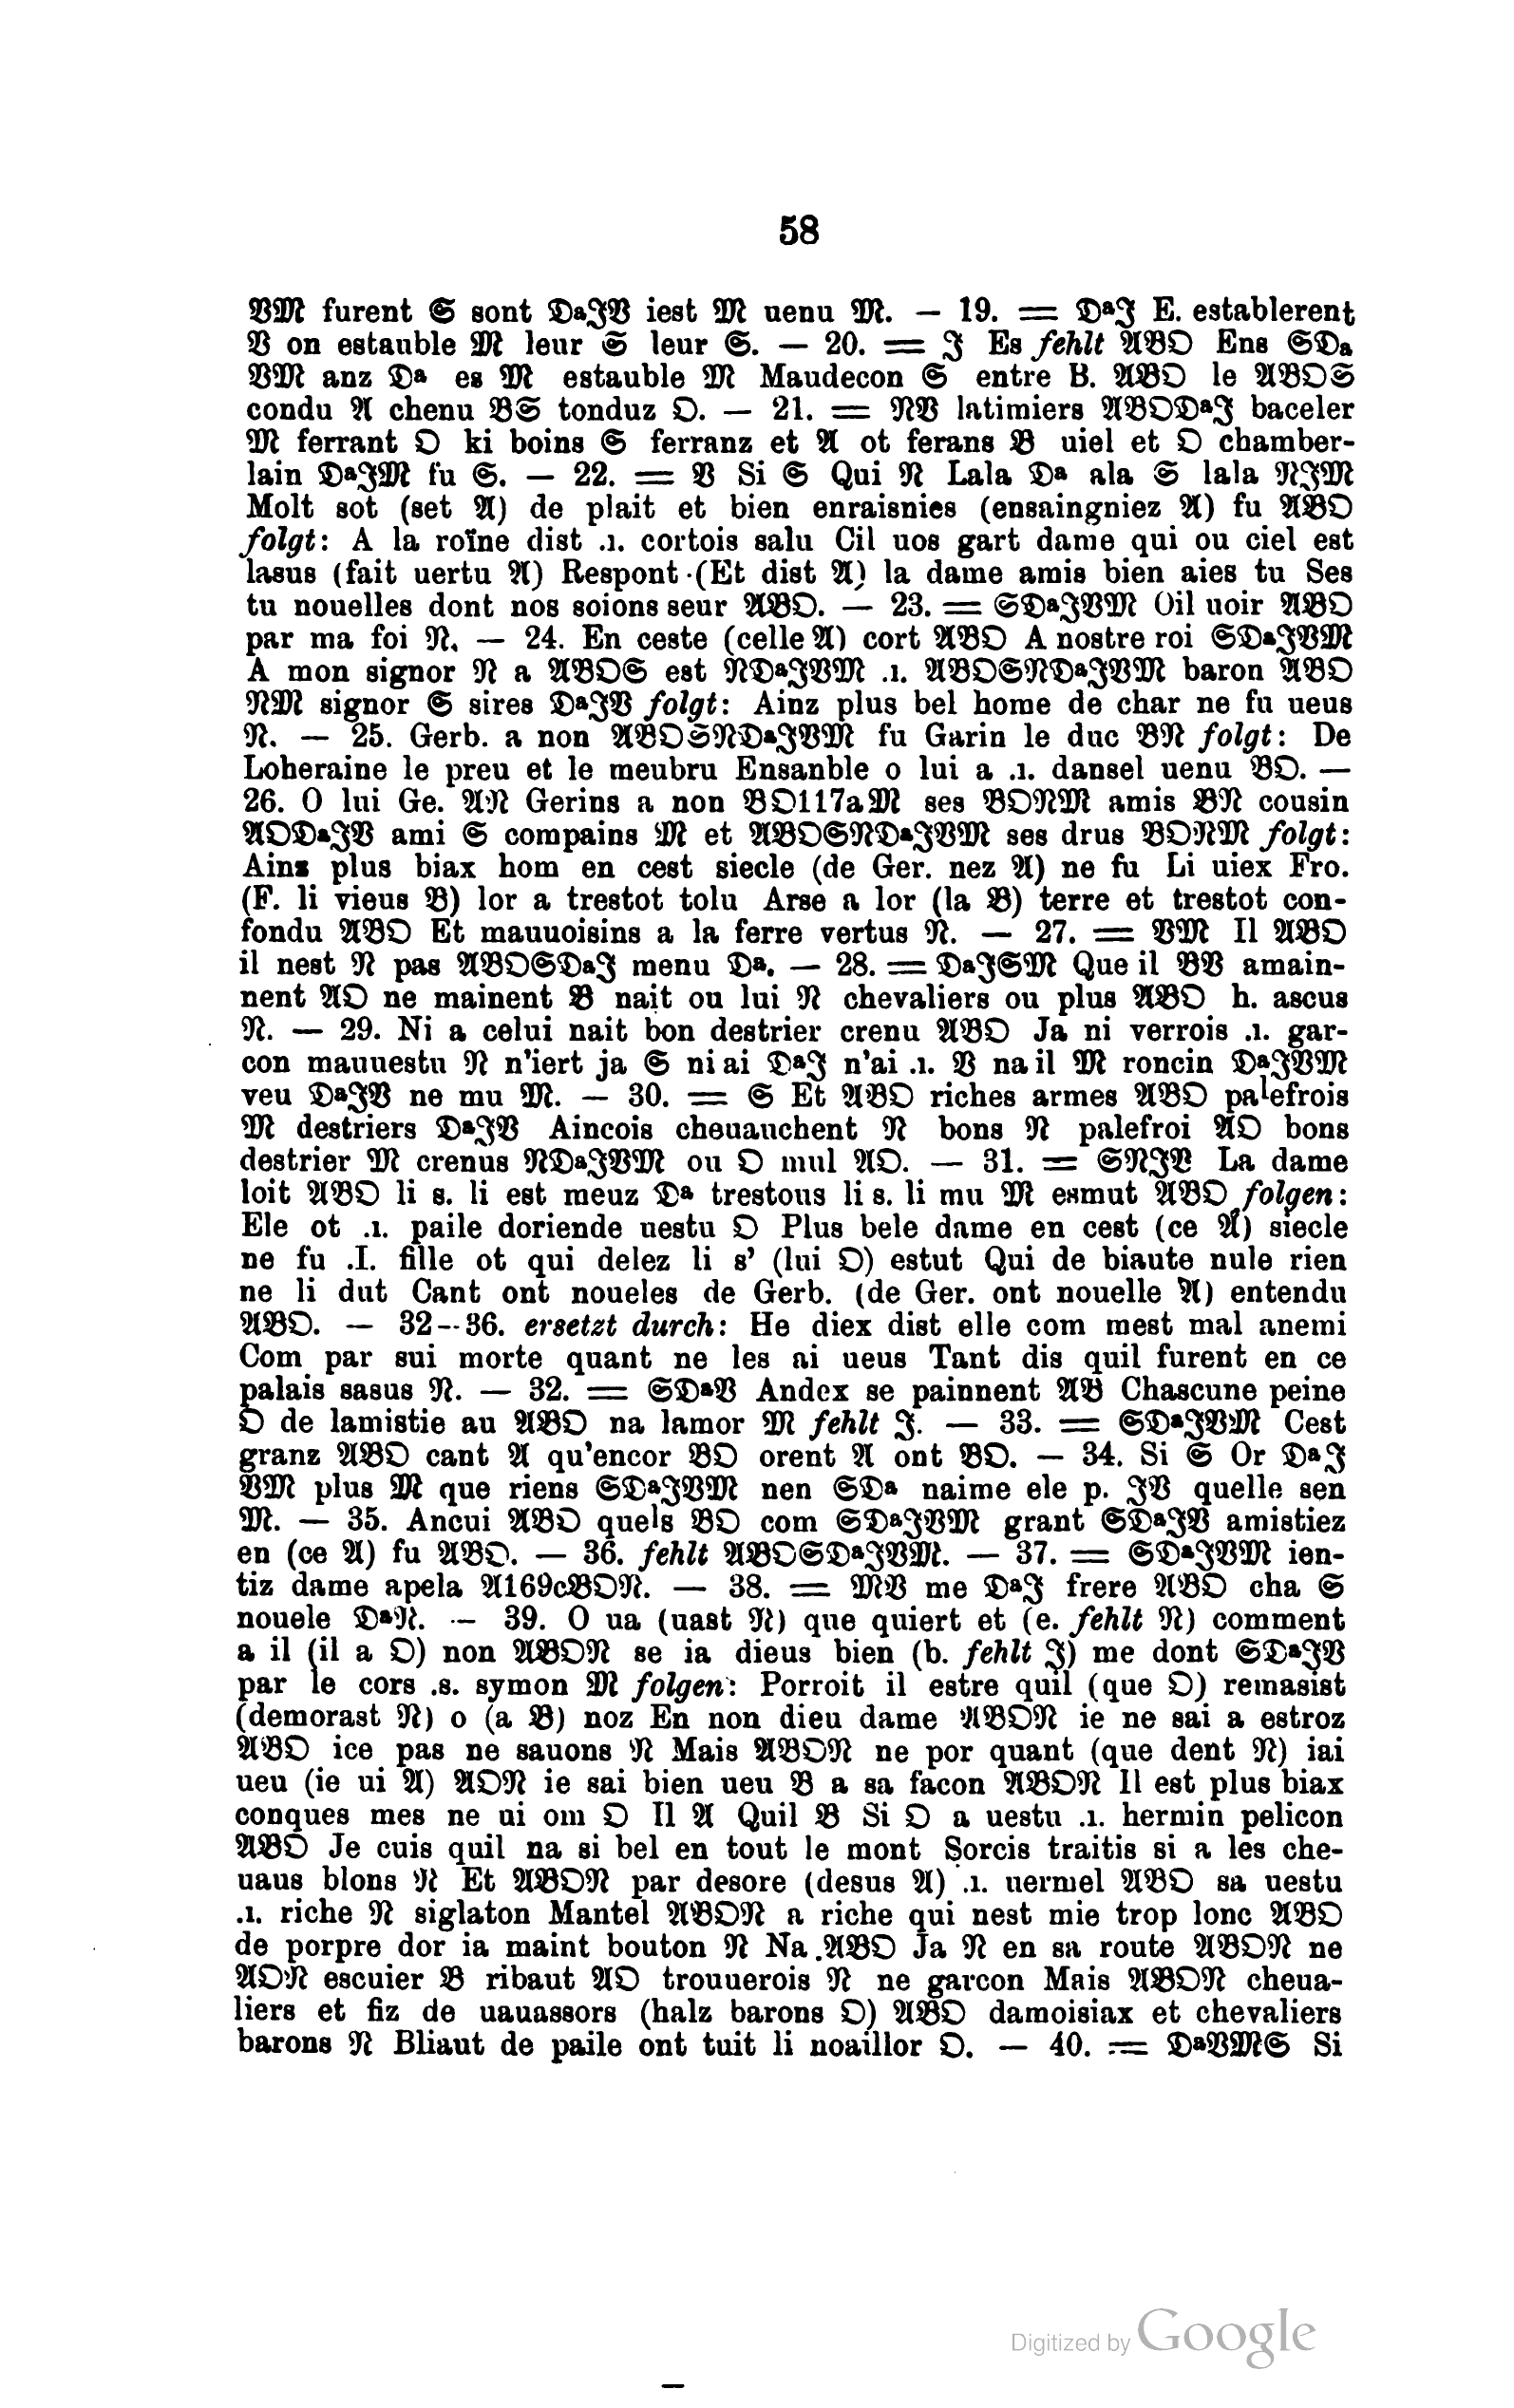 58
𝔙𝔐 furent 𝔖 sont 𝔇a𝔍𝔙 iest 𝔐 uenu 𝔐. — 19. = 𝔇a𝔍 E. establerent
𝔙 on estauble 𝔐 leur 𝔖 leur 𝔖. — 20. = 𝔍 Es fehlt 𝔄𝔅𝔒 Ens 𝔖𝔇a
𝔙𝔐 anz 𝔇a es 𝔐 estauble 𝔐 Maudecon 𝔖 entre B. 𝔄𝔅𝔒 le 𝔄𝔅𝔒𝔖
condu 𝔄 chenu 𝔅𝔖 tonduz 𝔒. — 21. = 𝔑𝔙 latimiers 𝔄𝔅𝔒𝔇a𝔍 baceler
𝔐 ferrant 𝔒 ki boins 𝔖 ferranz et 𝔄 ot ferans 𝔅 uiel et 𝔒 chamber-
lain 𝔇a𝔍𝔐 fu 𝔖. — 22. = 𝔙 Si 𝔖 Qui 𝔑 Lala 𝔇a ala 𝔖 lala 𝔑𝔍𝔐
Molt sot (set 𝔄) de plait et bien enraisnies (ensaingniez 𝔄) fu 𝔄𝔅𝔒
folgt: A la roïne dist .ı. cortois salu Cil uos gart dame qui ou ciel est
lasus (fait uertu 𝔄) Respont (Et dist 𝔄) la dame amis bien aies tu Ses
tu nouelles dont nos soions seur 𝔄𝔅𝔒. — 23. = 𝔖𝔇a𝔍𝔙𝔐 Oil uoir 𝔄𝔅𝔒
par ma foi 𝔑. — 24. En ceste (celle 𝔄) cort 𝔄𝔅𝔒 A nostre roi 𝔖𝔇a𝔍𝔙𝔐
A mon signor 𝔑 a 𝔄𝔅𝔒𝔖 est 𝔑𝔇a𝔍𝔙𝔐 .ı. 𝔄𝔅𝔒𝔖𝔑𝔇a𝔍𝔙𝔐 baron 𝔄𝔅𝔒
𝔑𝔐 signor 𝔖 sires 𝔇a𝔍𝔙 folgt: Ainz plus bel home de char ne fu ueus
𝔑. — 25. Gerb. a non 𝔄𝔅𝔒𝔖𝔑𝔇a𝔍𝔙𝔐 fu Garin le duc 𝔅𝔑 folgt: De
Loheraine le preu et le meubru Ensanble o lui a .ı. dansel uenu 𝔅𝔒. —
26. O lui Ge. 𝔄𝔑 Gerins a non 𝔅𝔒117a𝔐 ses 𝔅𝔒𝔑𝔐 amis 𝔅𝔑 cousin
𝔄𝔒𝔇a𝔍𝔙 ami 𝔖 compains 𝔐 et 𝔄𝔅𝔒𝔖𝔑𝔇a𝔍𝔙𝔐 ses drus 𝔅𝔒𝔑𝔐 folgt:
Ains plus biax hom en cest siecle (de Ger. nez 𝔄) ne fu Li uiex Fro.
(F. li vieus 𝔅) lor a trestot tolu Arse a lor (la 𝔅) terre et trestot con-
fondu 𝔄𝔅𝔒 Et mauuoisins a la ferre vertus 𝔑. — 27. = 𝔙𝔐 Il 𝔄𝔅𝔒
il nest 𝔑 pas 𝔄𝔅𝔒𝔖𝔇a𝔍 menu 𝔇a. — 28. = 𝔇a𝔍𝔖𝔐 Que il 𝔅𝔙 amain-
nent 𝔄𝔒 ne mainent 𝔅 nait ou lui 𝔑 chevaliers ou plus 𝔄𝔅𝔒 h. ascus
𝔑. — 29. Ni a celui nait bon destrier crenu 𝔄𝔅𝔒 Ja ni verrois .ı. gar-
con mauuestu 𝔑 n'iert ja 𝔖 ni ai 𝔇a𝔍 n'ai .ı. 𝔙 na il 𝔐 roncin 𝔇a𝔍𝔙𝔐
veu 𝔇a𝔍𝔙 ne mu 𝔐. — 30. = 𝔖 Et 𝔄𝔅𝔒 riches armes 𝔄𝔅𝔒 palefrois
𝔐 destriers 𝔇a𝔍𝔙 Aincois cheuauchent 𝔑 bons 𝔑 palefroi 𝔄𝔒 bons
destrier 𝔐 crenus 𝔑𝔇a𝔍𝔙𝔐 ou 𝔒 mul 𝔄𝔒. — 31. = 𝔖𝔑𝔍𝔙 La dame
loit 𝔄𝔅𝔒 li s. li est meuz 𝔇a trestous li s. li mu 𝔐 esmut 𝔄𝔅𝔒 folgen:
Ele ot .ı. paile doriende uestu 𝔒 Plus bele dame en cest (ce 𝔄) siecle
ne fu .I. fille ot qui delez li s' (lui 𝔒) estut Qui de biaute nule rien
ne li dut Cant ont noueles de Gerb. (de Ger. ont nouelle 𝔄) entendu
𝔄𝔅𝔒. — 32--36. ersetzt durch: He diex dist elle com mest mal anemi
Com par sui morte quant ne les ai ueus Tant dis quil furent en ce
palais sasus 𝔑. — 32. = 𝔖𝔇a𝔙 Andex se painnent 𝔄𝔅 Chascune peine
𝔒 de lamistie au 𝔄𝔅𝔒 na lamor 𝔐 fehlt 𝔍. — 33. = 𝔖𝔇a𝔍𝔙𝔐 Cest
granz 𝔄𝔅𝔒 cant 𝔄 qu'encor 𝔅𝔒 orent 𝔄 ont 𝔅𝔒. — 34. Si 𝔖 Or 𝔇a𝔍
𝔙𝔐 plus 𝔐 que riens 𝔖𝔇a𝔍𝔙𝔐 nen 𝔖𝔇a naime ele p. 𝔍𝔙 quelle sen
𝔐. — 35. Ancui 𝔄𝔅𝔒 quels 𝔅𝔒 com 𝔖𝔇a𝔍𝔙𝔐 grant 𝔖𝔇a𝔍𝔙 amistiez
en (ce 𝔄) fu 𝔄𝔅𝔒. — 36. fehlt 𝔄𝔅𝔒𝔖𝔇a𝔍𝔙𝔐. — 37. = 𝔖𝔇a𝔍𝔙𝔐 ien-
tiz dame apela 𝔄169c𝔅𝔒𝔑. — 38. = 𝔐𝔙 me 𝔇a𝔍 frere 𝔄𝔅𝔒 cha 𝔖
nouele 𝔇a𝔑. — 39. O ua (uast 𝔑) que quiert et (e. fehlt 𝔑) comment
a il (il a 𝔒) non 𝔄𝔅𝔒𝔑 se ia dieus bien (b. fehlt 𝔍) me dont 𝔖𝔇a𝔍𝔙
par le cors .s. symon 𝔐 folgen: Porroit il estre quil (que 𝔒) remasist
(demorast 𝔑) o (a 𝔅) noz En non dieu dame 𝔄𝔅𝔒𝔑 ie ne sai a estroz
𝔄𝔅𝔒 ice pas ne sauons 𝔑 Mais 𝔄𝔅𝔒𝔑 ne por quant (que dent 𝔑) iai
ueu (ie ui 𝔄) 𝔄𝔒𝔑 ie sai bien ueu 𝔅 a sa facon 𝔄𝔅𝔒𝔑 Il est plus biax
conques mes ne ui om 𝔒 Il 𝔄 Quil 𝔅 Si 𝔒 a uestu .ı. hermin pelicon
𝔄𝔅𝔒 Je cuis quil na si bel en tout le mont Sorcis traitis si a les che-
uaus blons 𝔑 Et 𝔄𝔅𝔒𝔑 par desore (desus 𝔄) .ı. uermel 𝔄𝔅𝔒 sa uestu
.ı. riche 𝔑 siglaton Mantel 𝔄𝔅𝔒𝔑 a riche qui nest mie trop lonc 𝔄𝔅𝔒
de porpre dor ia maint bouton 𝔑 Na 𝔄𝔅𝔒 Ja 𝔑 en sa route 𝔄𝔅𝔒𝔑 ne
𝔄𝔒𝔑 escuier 𝔅 ribaut 𝔄𝔒 trouuerois 𝔑 ne garcon Mais 𝔄𝔅𝔒𝔑 cheua-
liers et fiz de uauassors (halz barons 𝔒) 𝔄𝔅𝔒 damoisiax et chevaliers
barons 𝔑 Bliaut de paile ont tuit li noaillor 𝔒. — 40. = 𝔇a𝔙𝔐𝔖 Si
Digitized by Google